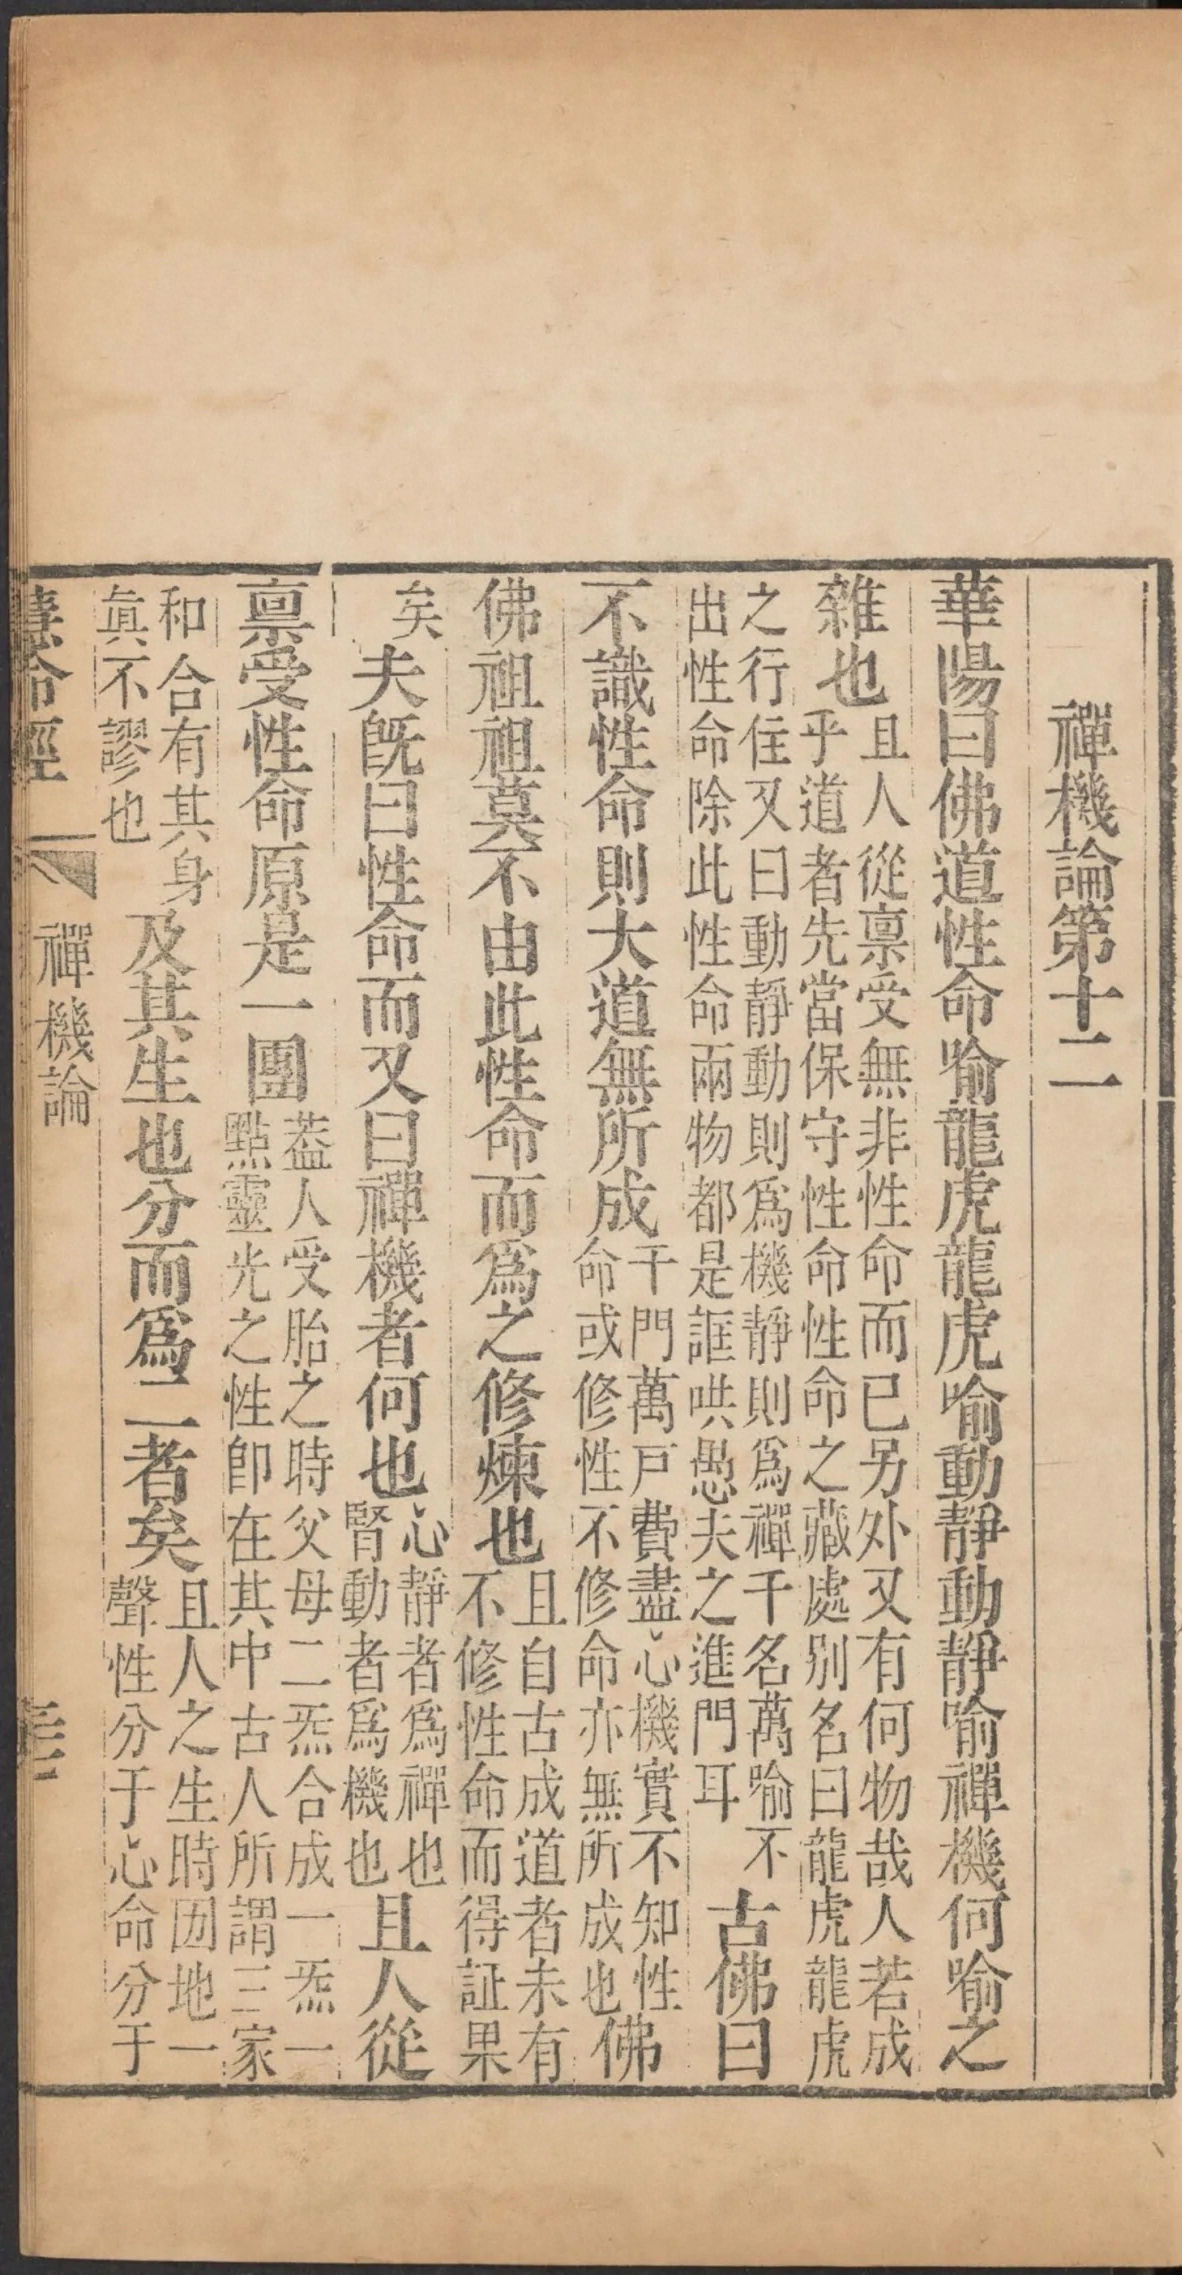 禪機論第十二
華陽曰佛道性命喻龍虎龍虎喻動靜動靜喻禪機何喻之
雜也
且人從禀受無非性命而已另外又有何物哉人若成
乎道者先當保守性命性命之藏處别名曰龍虎龍虎
之行住又曰動靜動則爲機靜則爲禪千名萬喻不
出性命除此性命兩物都是誆哄愚夫之進門耳
古佛曰
不識性命則大道無所成
千門萬戸費盡心機實不知性
命或修性不修命亦無所成也
佛
佛祖祖莫不由此性命而爲之修煉也
且自古成道者未有
不修性命而得証果
矣
夫既曰性命而又曰禪機者何也
心靜者爲禪也
腎動者爲機也
且人從
禀受性命原是一團
葢人受胎之時父母二炁合成一炁一
㸃靈光之性卽在其中古人所謂三家
和合有其身
眞不謬也
及其生也分而爲二者矣
且人之生時因地一
聲性分于心命分于
慧命經
禪機論